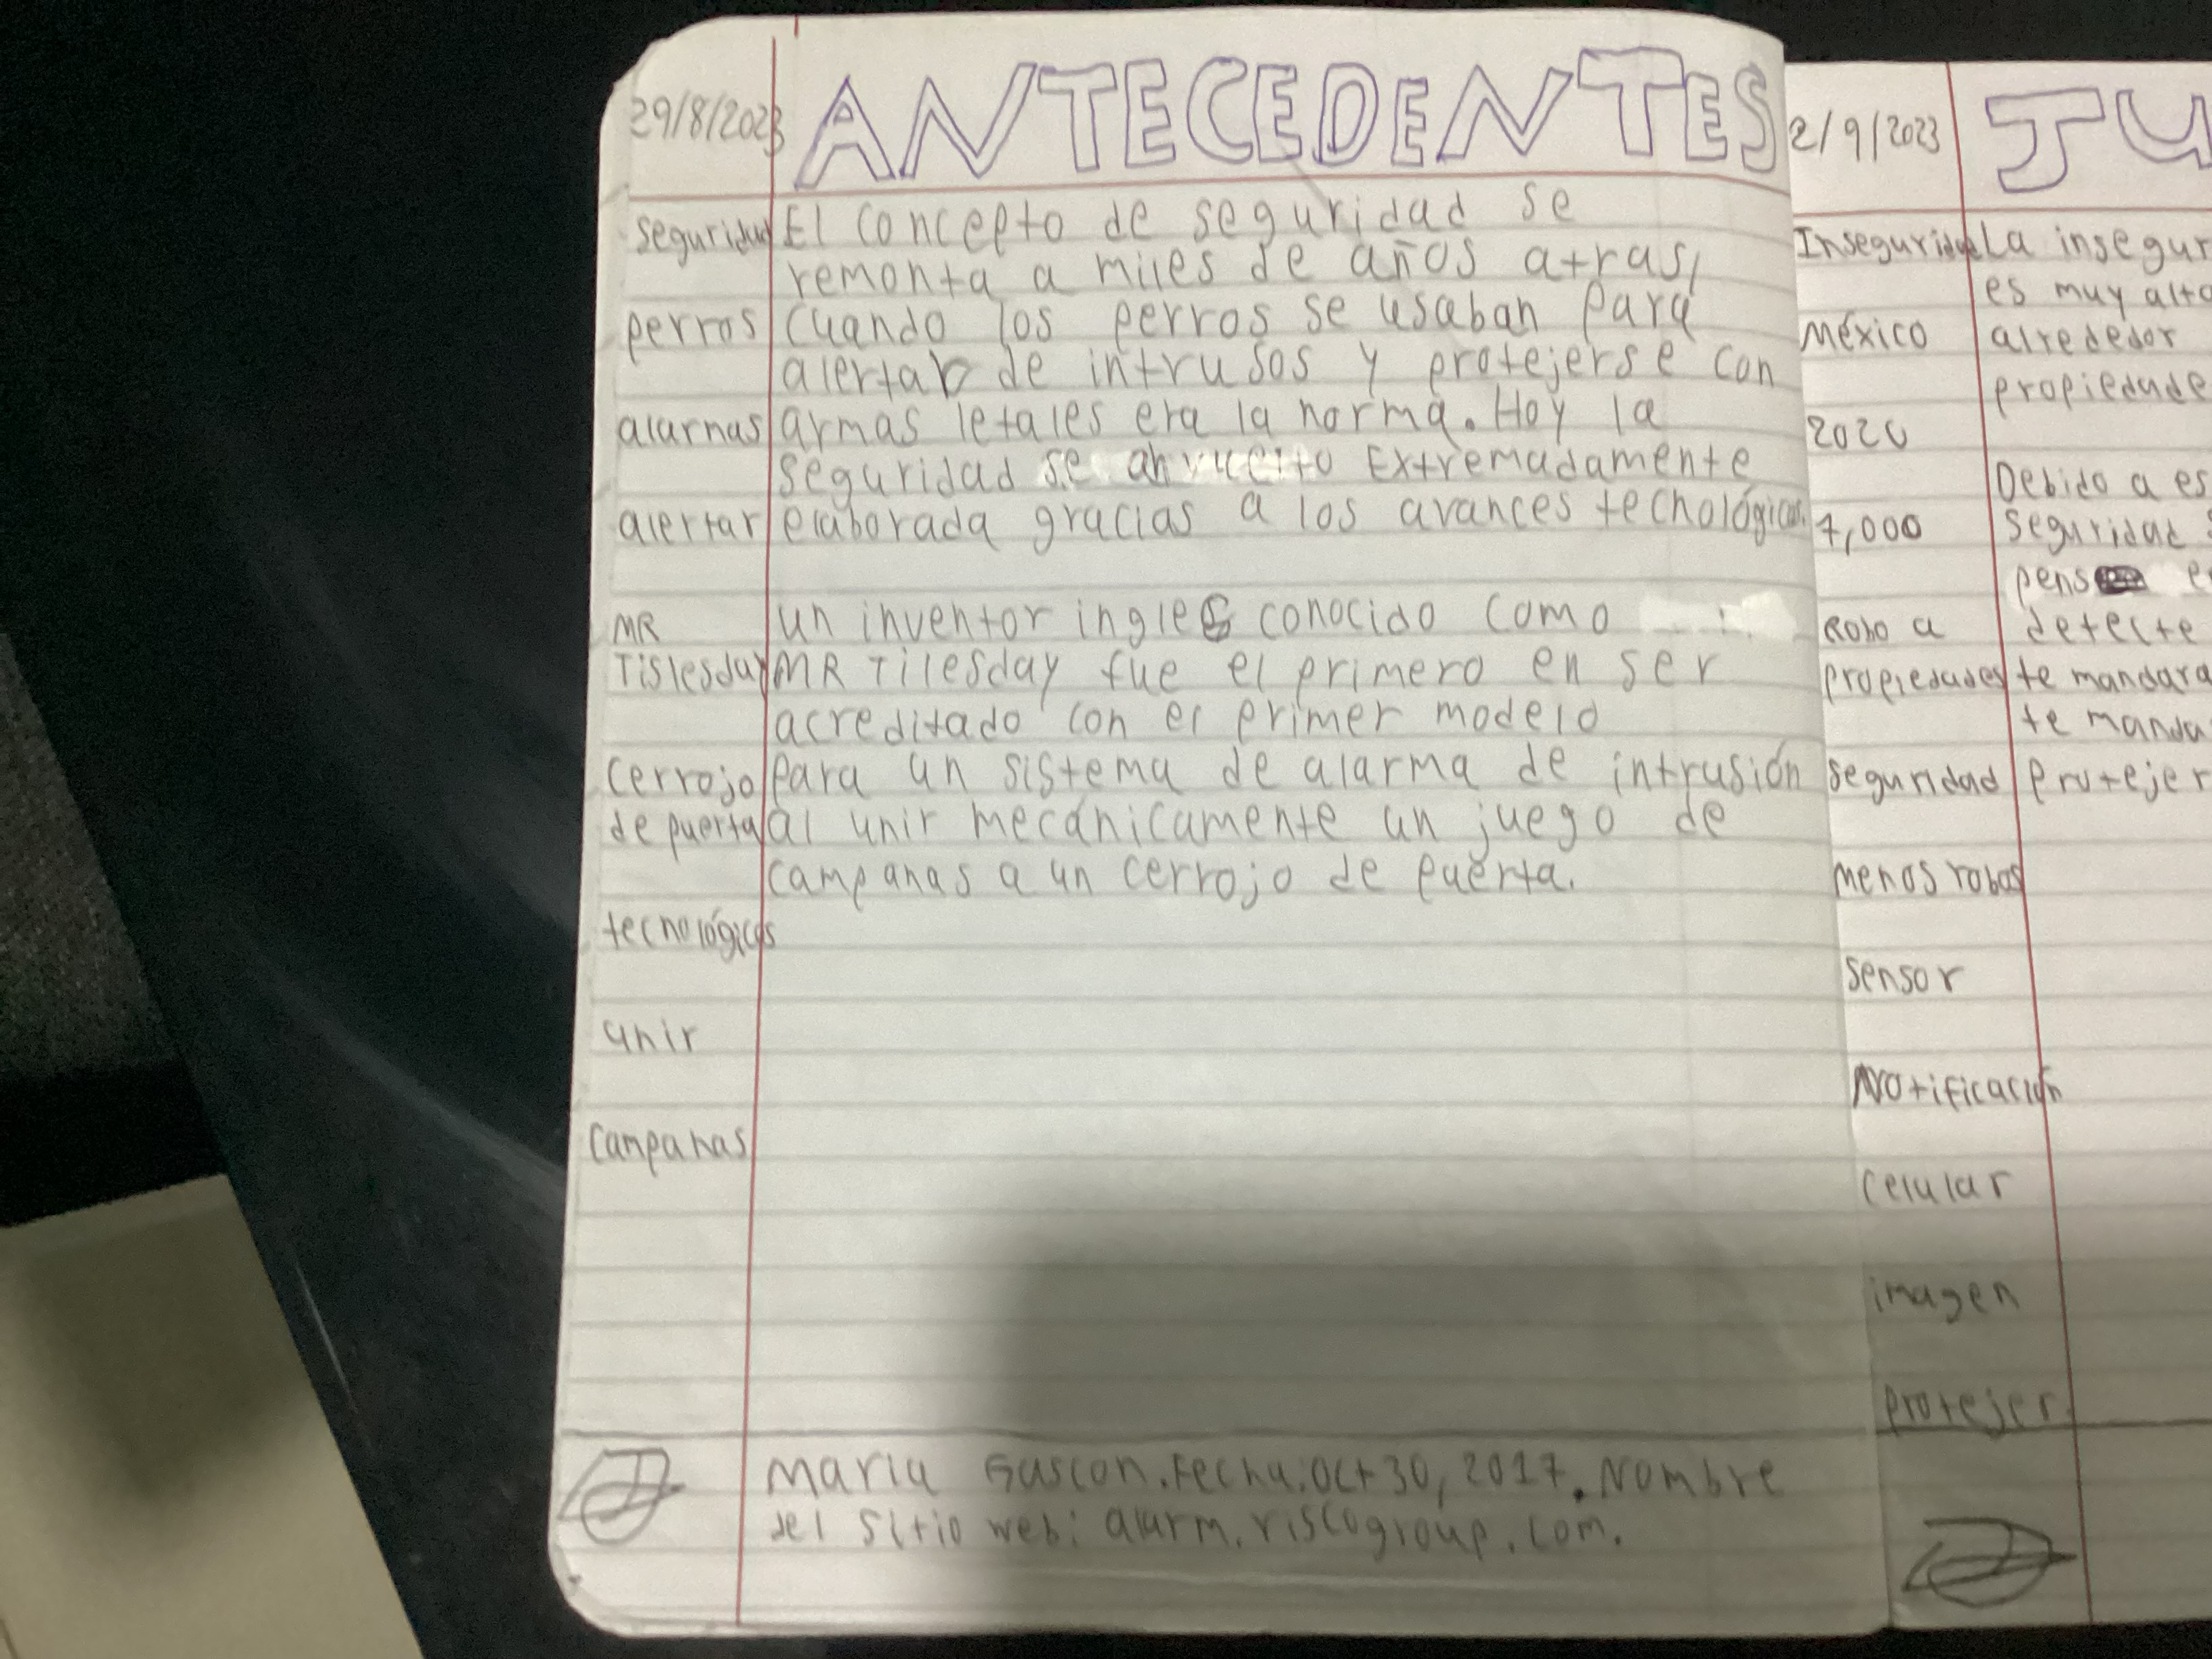 29/8/2023
ANTECEDENTES
seguridad
perros
alarmas
alertar
MR
Tislesday
cerrojo
de puerta
tecnológicos
unir
campanas
El concepto de seguridad se
remonta a miles de años atras,
cuando los perros se usaban para
alertar de intrusos y protejerse con
armas letales era la norma. Hoy la
seguridad se ah vuelto Extremadamente
elaborada gracias a los avances tecnológicos.
un inventor ingles conocido como
MR Tilesday fue el primero en ser
acreditado con el primer modelo
para un sistema de alarma de intrusión
al unir mecánicamente un juego de
campanas a un cerrojo de puerta.
Maria Gascon. Fecha: Oct 30, 2017. Nombre
del sitio web: alarm.riscogroup.com.
2/9/2023
JU
Inseguridad
México
2020
7,000
Robo a
propiedades
seguridad
menos robos
sensor
Notificación
celular
imagen
protejer
La insegur
es muy alta
alrededor
propiedade
Debido a es
seguridad
pens
detecte
te mandara
te manda
protejer